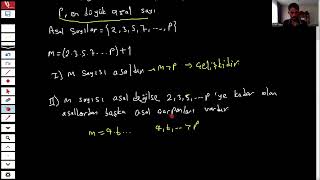 P, en büyük asal sayı
Asal sayılar = {2,3,5,7,...,P}
m=(2.3.5.7...P)+1
I) m sayısı asaldır → m>P → çelişkidir
II) m sayısı asal değilse 2,3,5,...P 'ye kadar olan
asallardan başka asal çarpanları vardır
m=a.b... a,b,...>P